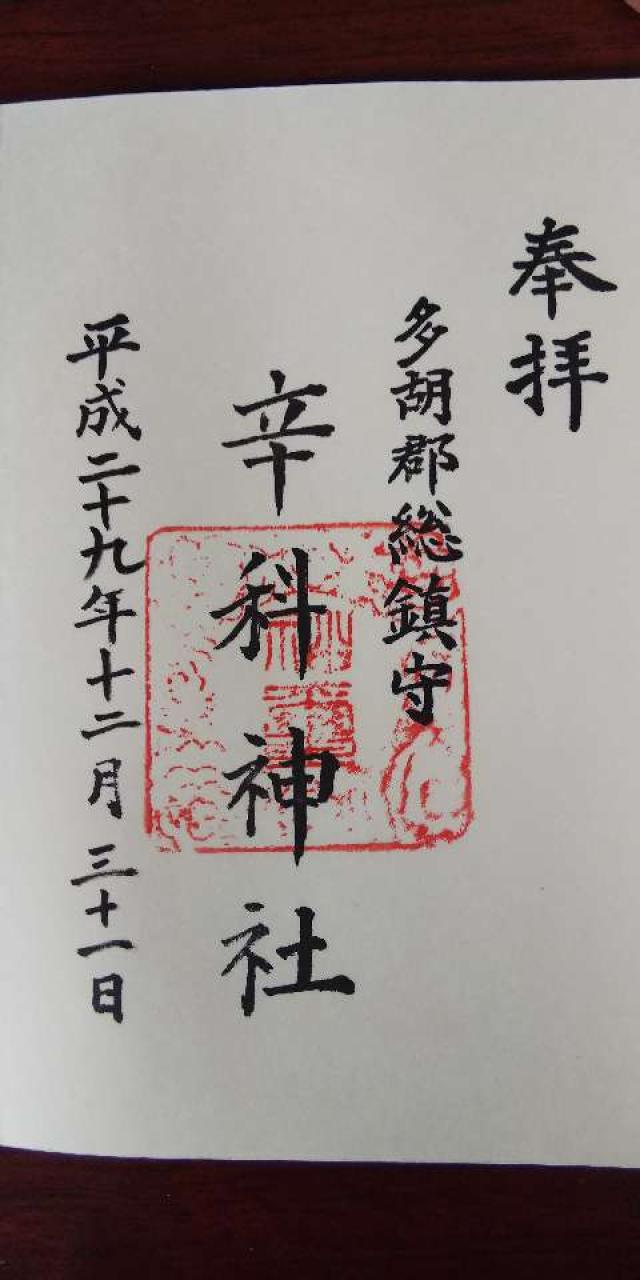 奉拝
多胡郡総鎮守
辛科神社
平成二十九年十二月三十一日